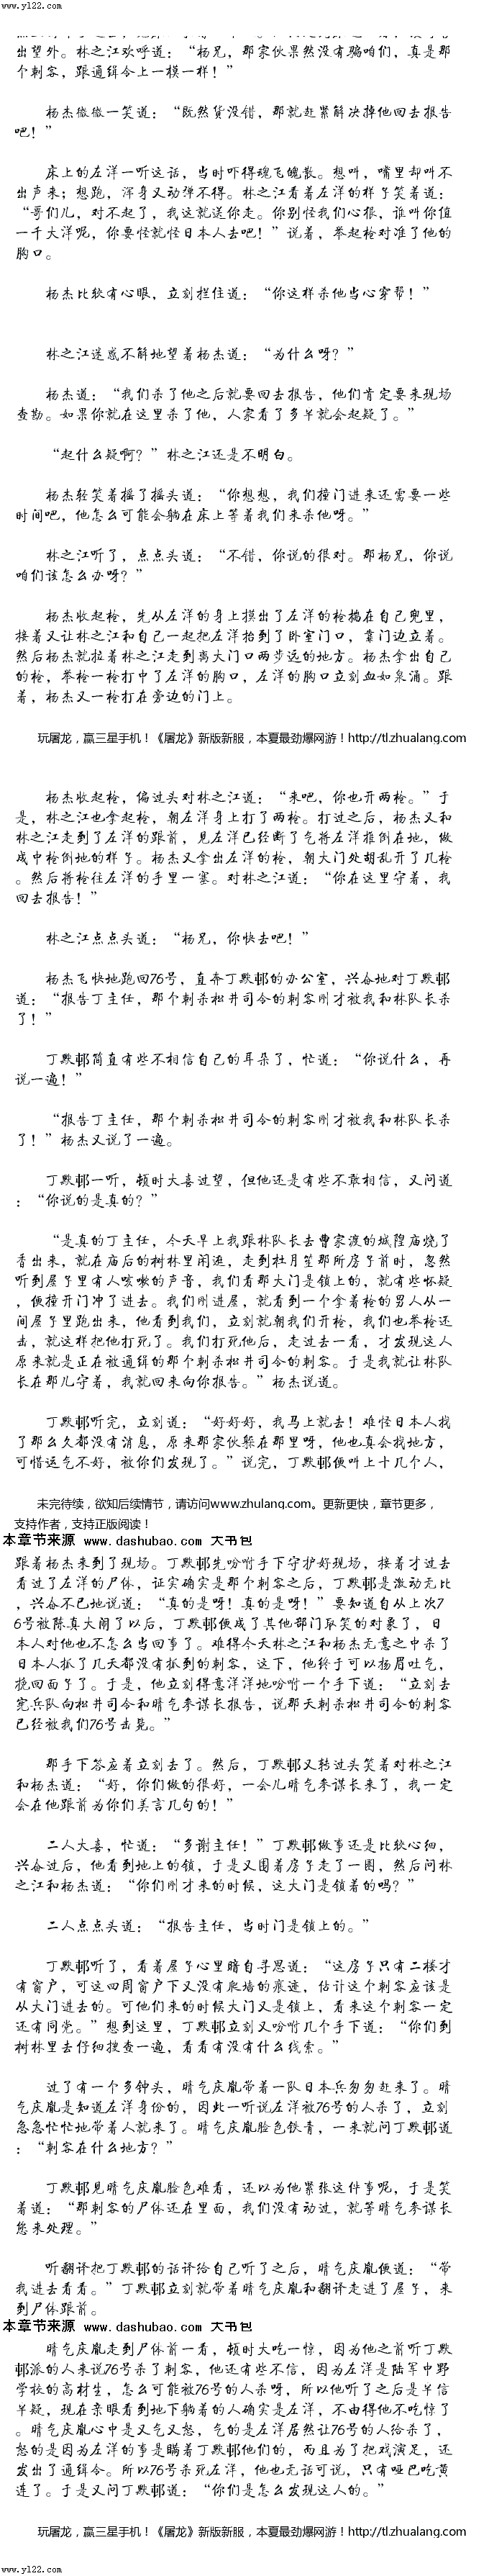 www.yl22.com
出望外。林之江欢呼道：“杨兄，那家伙果然没有骗咱们，真是那
个刺客，跟通缉令上一模一样！”
杨杰微微一笑道：“既然货没错，那就赶紧解决掉他回去报告
吧！”
床上的左洋一听这话，当时吓得魂飞魄散。想叫，嘴里却叫不
出声来；想跑，浑身又动弹不得。林之江看着左洋的样子笑着道：
“哥们儿，对不起了，我这就送你走。你别怪我们心狠，谁叫你值
一千大洋呢，你要怪就怪日本人去吧！”说着，举起枪对准了他的
胸口。
杨杰比较有心眼，立刻拦住道：“你这样杀他当心穿帮！”
林之江迷惑不解地望着杨杰道：“为什么呀？”
杨杰道：“我们杀了他之后就要回去报告，他们肯定要来现场
查勘。如果你就在这里杀了他，人家看了多半就会起疑了。”
“起什么疑啊？”林之江还是不明白。
杨杰轻笑着摇了摇头道：“你想想，我们撞门进来还需要一些
时间吧，他怎么可能会躺在床上等着我们来杀他呀。”
林之江听了，点点头道：“不错，你说的很对。那杨兄，你说
咱们该怎么办呀？”
杨杰收起枪，先从左洋的身上摸出了左洋的枪揣在自己兜里，
接着又让林之江和自己一起把左洋抬到了卧室门口，靠门边立着。
然后杨杰就拉着林之江走到离大门口两步远的地方。杨杰拿出自己
的枪，举枪一枪打中了左洋的胸口，左洋的胸口立刻血如泉涌。跟
着，杨杰又一枪打在旁边的门上。
玩屠龙，赢三星手机！《屠龙》新版新服，本夏最劲爆网游！http://tl.zhualang.com
杨杰收起枪，偏过头对林之江道：“来吧，你也开两枪。”于
是，林之江也拿起枪，朝左洋身上打了两枪。打过之后，杨杰又和
林之江走到了左洋的跟前，见左洋已经断了气将左洋推倒在地，做
成中枪倒地的样子。杨杰又拿出左洋的枪，朝大门处胡乱开了几枪
。然后将枪往左洋的手里一塞。对林之江道：“你在这里守着，我
回去报告！”
林之江点点头道：“杨兄，你快去吧！”
杨杰飞快地跑回76号，直奔丁默邨的办公室，兴奋地对丁默邨
道：“报告丁主任，那个刺杀松井司令的刺客刚才被我和林队长杀
了！”
丁默邨简直有些不相信自己的耳朵了，忙道：“你说什么，再
说一遍！”
“报告丁主任，那个刺杀松井司令的刺客刚才被我和林队长杀
了！”杨杰又说了一遍。
丁默邨一听，顿时大喜过望，但他还是有些不敢相信，又问道
：“你说的是真的？”
“是真的丁主任，今天早上我跟林队长去曹家渡的城隍庙烧了
香出来，就在庙后的树林里闲逛，走到杜月笙那所房子前时，忽然
听到屋子里有人咳嗽的声音，我们看那大门是锁上的，就有些怀疑
，便撞开门冲了进去。我们刚进屋，就看到一个拿着枪的男人从一
间屋子里跑出来，他看到我们，立刻就朝我们开枪，我们也举枪还
击，就这样把他打死了。我们打死他后，走过去一看，才发现这人
原来就是正在被通缉的那个刺杀松井司令的刺客。于是我就让林队
长在那儿守着，我就回来向你报告。”杨杰说道。
丁默邨听完，立刻道：“好好好，我马上就去！难怪日本人找
了那么久都没有消息，原来那家伙躲在那里呀，他也真会找地方，
可惜运气不好，被你们发现了。”说完，丁默邨便叫上十几个人，
未完待续，欲知后续情节，请访问www.zhulang.com。更新更快，章节更多，
支持作者，支持正版阅读！
本章节来源 www.dashubao.com 大书包
跟着杨杰来到了现场。丁默邨先吩咐手下守护好现场，接着才过去
看过了左洋的尸体，证实确实是那个刺客之后，丁默邨是激动无比
，兴奋不已地说道：“真的是呀！真的是呀！”要知道自从上次7
6号被陈真大闹了以后，丁默邨便成了其他部门耻笑的对象了，日
本人对他也不怎么当回事了。难得今天林之江和杨杰无意之中杀了
日本人抓了几天都没有抓到的刺客，这下，他终于可以扬眉吐气，
挽回面子了。于是，他立刻得意洋洋地吩咐一个手下道：“立刻去
宪兵队向松井司令和晴气参谋长报告，说那天刺杀松井司令的刺客
已经被我们76号击毙。”
那手下答应着立刻去了。然后，丁默邨又转过头笑着对林之江
和杨杰道：“好，你们做的很好，一会儿晴气参谋长来了，我一定
会在他跟前为你们美言几句的！”
二人大喜，忙道：“多谢主任！”丁默邨做事还是比较心细，
兴奋过后，他看到地上的锁，于是又围着房子走了一圈，然后问林
之江和杨杰道：“你们刚才来的时候，这大门是锁着的吗？”
二人点点头道：“报告主任，当时门是锁上的。”
丁默邨听了，看着屋子心里暗自寻思道：“这房子只有二楼才
有窗户，可这四周窗户下又没有爬墙的痕迹，估计这个刺客应该是
从大门进去的。可他们来的时候大门又是锁上，看来这个刺客一定
还有同党。”想到这里，丁默邨立刻又吩咐几个手下道：“你们到
树林里去仔细搜查一遍，看看有没有什么线索。”
过了有一个多钟头，晴气庆胤带着一队日本兵匆匆赶来了。晴
气庆胤是知道左洋身份的，因此一听说左洋被76号的人杀了，立刻
急急忙忙地带着人就来了。晴气庆胤脸色铁青，一来就问丁默邨道
：“刺客在什么地方？”
丁默邨见晴气庆胤脸色难看，还以为他紧张这件事呢，于是笑
着道：“那刺客的尸体还在里面，我们没有动过，就等晴气参谋长
您来处理。”
听翻译把丁默邨的话译给自己听了之后，晴气庆胤便道：“带
我进去看看。”丁默邨立刻就带着晴气庆胤和翻译走进了屋子，来
到尸体跟前。
本章节来源 www.dashubao.com 大书包
晴气庆胤走到尸体前一看，顿时大吃一惊，因为他之前听丁默
邨派的人来说76号杀了刺客，他还有些不信，因为左洋是陆军中野
学校的高材生，怎么可能被76号的人杀呀，所以他听了之后是半信
半疑，现在亲眼看到地下躺着的人确实是左洋，不由得他不吃惊了
。晴气庆胤心中是又气又怒，气的是左洋居然让76号的人给杀了，
怒的是因为左洋的事是瞒着丁默邨他们的，而且为了把戏演足，还
发出了通缉令。所以76号杀死左洋，他也无话可说，只有哑巴吃黄
连了。于是又问丁默邨道：“你们是怎么发现这人的。”
玩屠龙，赢三星手机！《屠龙》新版新服，本夏最劲爆网游！http://tl.zhualang.com
www.yl22.com